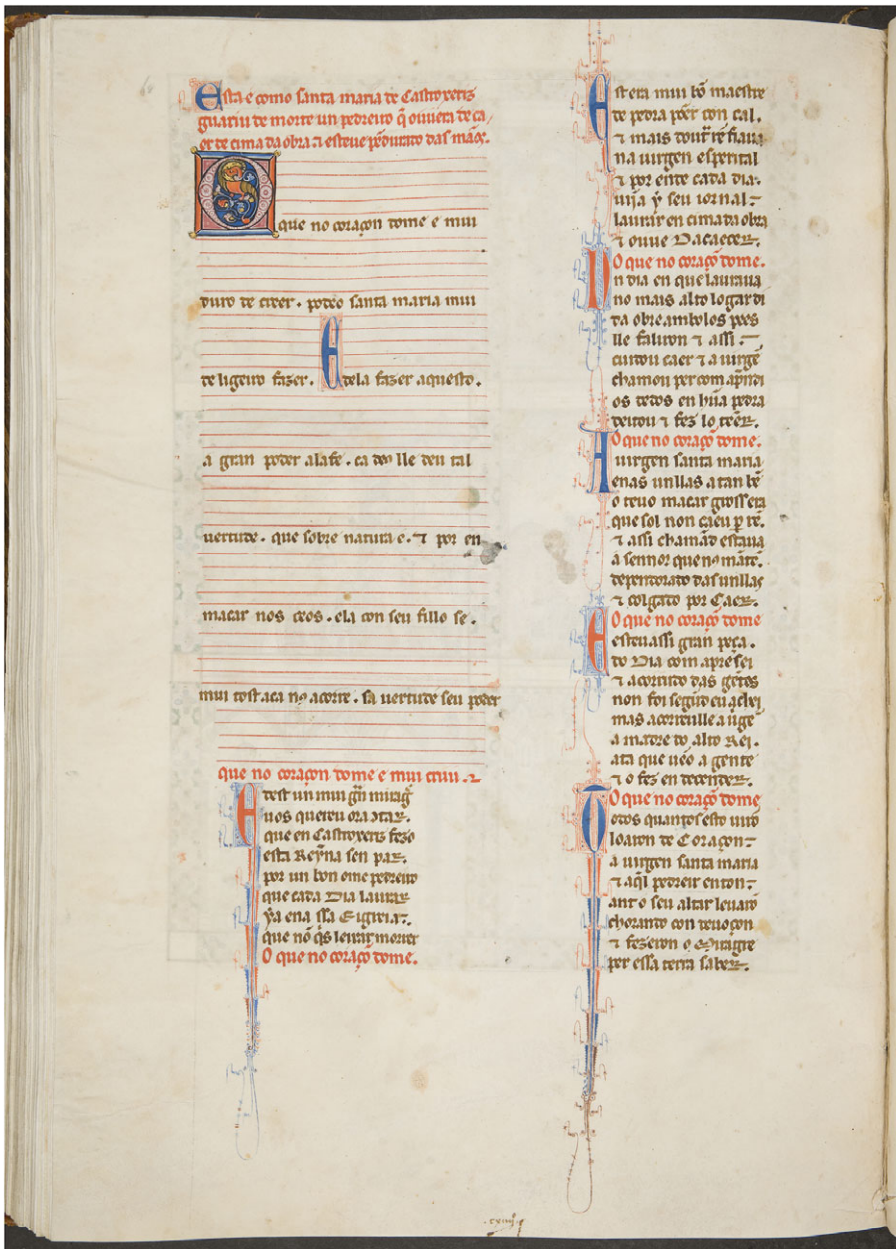 Esta e como santa maria de Castroxeriz
guariu de morte un pedreiro q̃ ouuera de ca
er de cima da obra ⁊ esteue pẽdorado das mãos.
O que no coraçon dome e mui
duro de creer. podeo santa maria mui
de ligeiro fazer. E dela fazer aquesto.
a gran poder alafe. ca deꝯ lle deu tal
vertude. que sobre natura e. ⁊ por en
macar nos ceos. ela con seu fillo se.
mui tost aca nꝯ acorre. sa vertude seu poder
que no coraçon dome e mui cruu. ⁊
E dest un mui gñ mirag̃
uos quereu ora ꝯtar.
que en Castroxeriz fezo
esta Reyna sen par.
por un bon ome pedreiro
que cada Dia laurar
ya ena ssa Eigreia.
que nõ q̇s leixar morrer
O que no coraçõ dome.
Este era mui bõ maestre
de pedra põer con cal.
⁊ mais doutr̃ rẽ fiaua
na uirgen esperital
⁊ por ende cada dia.
uĩja y seu iornal
laurar en cima da obra
⁊ ouue Dacaecer.
O que no coraçõ dome.
Un dia en que lauraua
no mais alto logar di
da obre ambolos pees
lle faliron ⁊ assi
cuidou caer ⁊ a uirgẽ
chamou per com apñdi
os dedos en hũa pedra
deitou ⁊ fez lo teer.
O que no coraçõ dome.
A uirgen santa maria
enas unllas a tan bẽ
o teuo macar grosser a
que sol non caeu p rẽ.
⁊ assi chamãd estaua
a sennor que nꝯ mãtẽ.
dependorado das unllas
⁊ colgado por Caer.
O que no coraçõ dome
E esteu assi gran peça.
do Dia com aprẽsei
⁊ acorrudo das gẽtes
non foi segũd eu achei
mas acorreulle a uigẽ
a madre do alto Rei.
ata que uẽo a gente
⁊ o fez en decender.
O que no coraçõ dome
Todos quantos esto uirõ
loaron de Coraçon
a uirgen santa maria
⁊ aq̃l pedreir enton
ant o seu altar leuarõ
chorando con deuoçon
⁊ fezeron o Miragre
per essa terra saber.